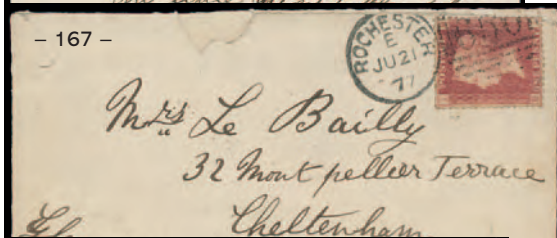 – 167 –
ROCHESTER
E
JU 21
77
Mrs Le Bailly
32 Montpellier Terrace
Cheltenham